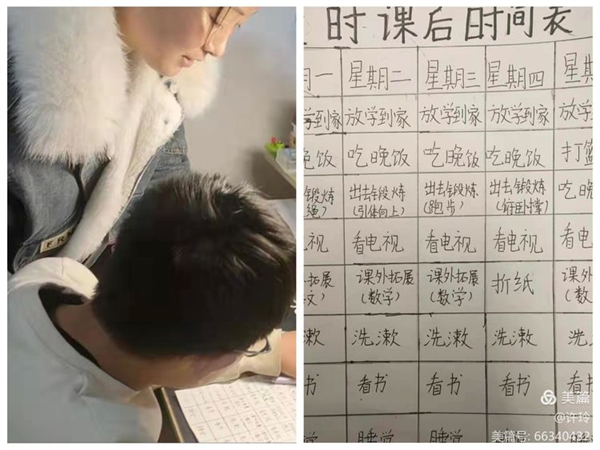 时课后时间表
一 星期二 星期三 星期四 星期
学到家 放学到家 放学到家 放学到家 放学
晚饭 吃晚饭 吃晚饭 吃晚饭 打篮
锻炼 出去锻炼 出去锻炼 出去锻炼 吃晚
绳) (引体向上) (跑步) (俯卧撑)
电视 看电视 看电视 看电视 看电
拓展 课外拓展 课外拓展 折纸 课外
文) (数学) (数学) (数
漱 洗漱 洗漱 洗漱 洗
书 看书 看书 看书 看书
觉 睡觉 睡觉 睡觉
美篇
@许玲
美篇号: 66340432